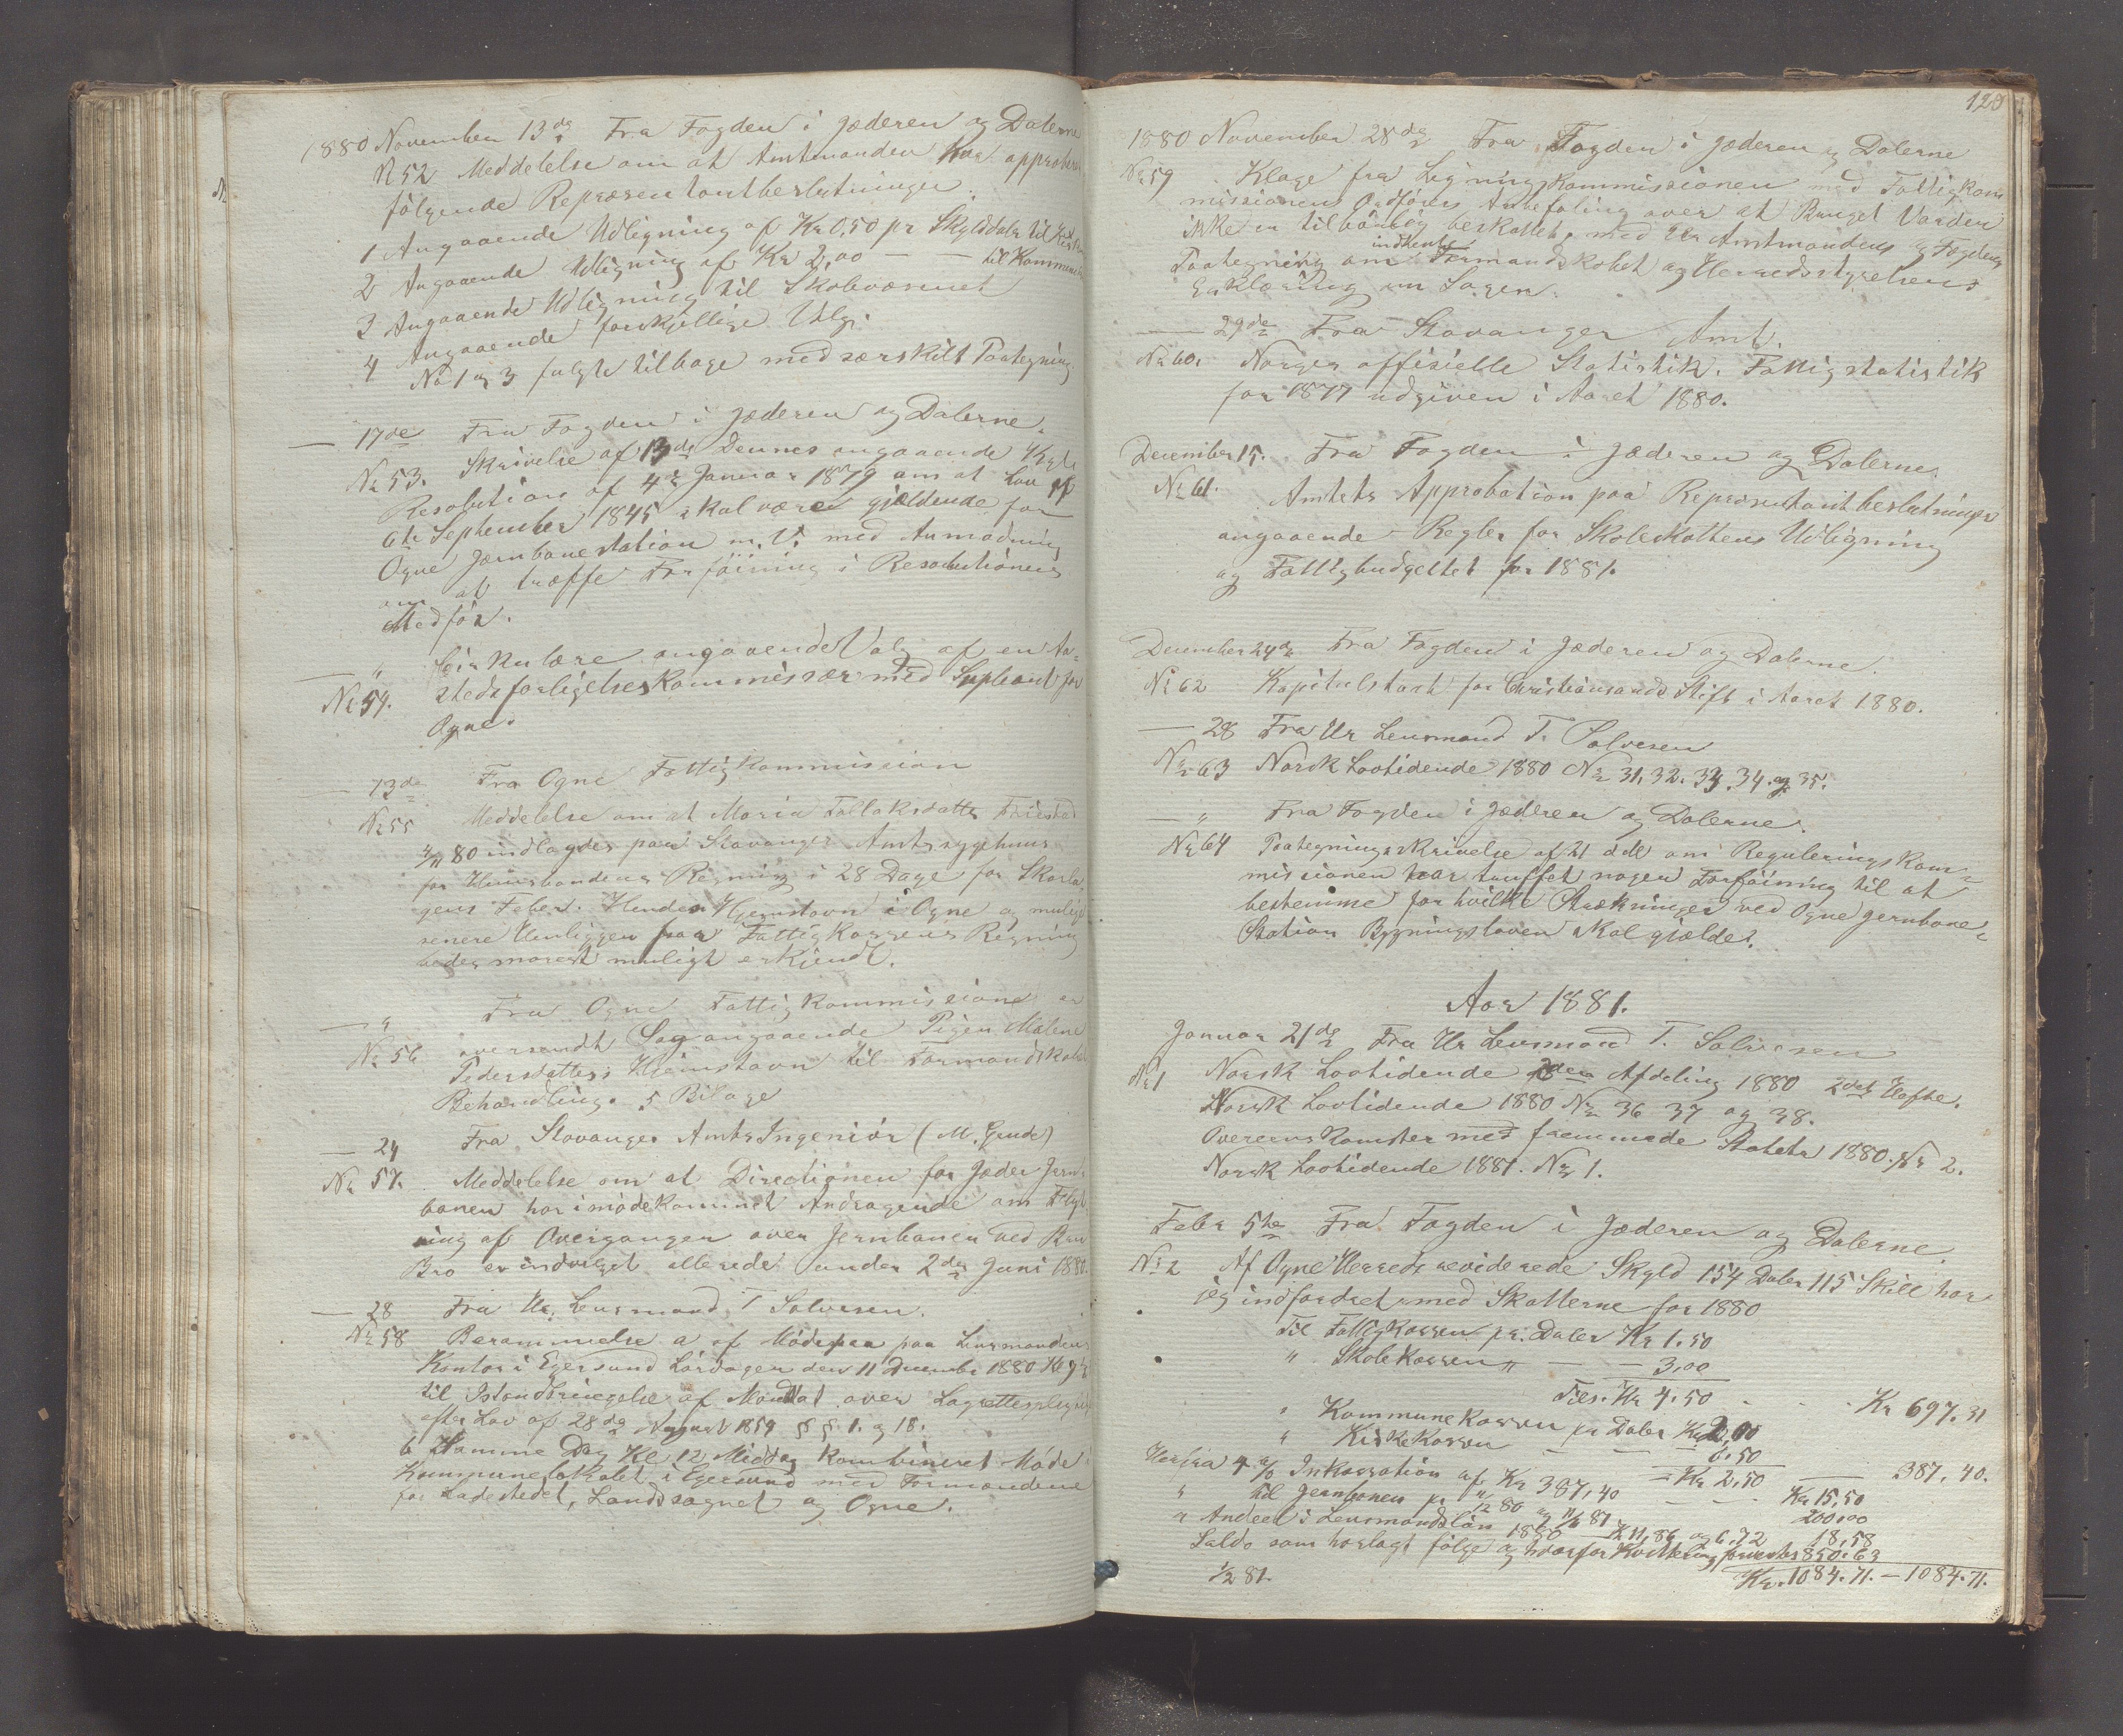 1880 November 13de Fra Fogden i Jæderen og Dalerne
N 52 Meddelelse om at Amtmanden har approberet
følgende Repræsentantbeslutninger.
1 Angaaende Udligning af Kr 0,50 pr Skylddaler til
2 Angaaende Udligning af Kr 2,00 — — til Kommune
3 Angaaende Udligning til Skolevæsenet
4 Angaaende forskjellige Valg.
No 1 og 3 fulgte tilbage med særskilt Paategning
— 17de Fra Fogden i Jæderen og Dalerne.
No 53. Skrivelse af 13de Dennes angaaende Kgl.
Resolution af 4de Januar 1879 om at Lov af
6te September 1845 skal være gjældende for
Ogne Jernbanestation m. V. med Anmodning
om at træffe Forføining i Resolutionens
Medfør.
— " Cirkulære angaaende Valg af en
No 54. stedsforligelseskommissær med Supleant for
Ogne.
— 13de Fra Ogne Fattigkommission
No 55 Meddelelse om at Maria Tollaksdatter
4/11 80 indlagdes paa Stavanger Amtssygehuus
for Huusbondens Regning i 28 Dage for Skarla
gens Feber. Hendes Hjemstavn i Ogne og mulig
senere Henliggen paa Fattigkassens Regning
bedes snarest muligt erkjendt.
— " Fra Ogne Fattigkommissione er
No 56 oversendt Sag angaaende Pigen Malene
Pedersdatters Hjemstavn til Formandskabets
Behandling. 5 Bilage
— 24 Fra Stavanger Amts Ingeniör (M. Grude)
No 57. Meddelelse om at Directionen for Jæder Jern
banen har imødekommet Andragende om
ning af Overgangen over Jernbanen ved
Bro er indviget allerede under 2den Juni 1880.
— 28 Fra Hr. Lensmand T Salvesen.
No 58 Berammelse a af Møde paa Lensmandens
Kontor i Egersund Lørdagen den 11 Decembr 1880 Kl 9½
til Istandbringelse af Mandtal over Lagrettespligtige
efter Lov af 28de August 1854 §§. 1. og 18.
b Samme Dag Kl 12 Middag Kombineret Møde i
Kommunelokalet i Egersund med Formændene
for Ladestedet, Landssognet og Ogne.
120
1880 November 28de Fra Fogden i Jæderen og Dalerne
No 59 Klage fra Ligningskommissionen med Fattigkom
missionens Ordførers Anbefaling over at Varden
ikke er tilbørlig beskattet, med Hr Amtmandens og Fogdens
indhente
Paategning om Formandskabet og Herredsstyrelsens
Erklæring om Sagen.
— 29de Fra Stavanger Amt.
No 60. Norges officielle Statistik. Fattigstatistik
for 1877 udgiven i Aaret 1880.
December 15. Fra Fogden i Jæderen og Dalerne.
No 61. Amtets Approbation paa Repræsentantbeslutninger
angaaende Regler for Skoleskattens Udligning
og Fattigbudgettet for 1881.
December 24de Fra Fogden i Jæderen og Dalerne.
No 62 Kapitelstaxt for Christiansands Stift i Aaret 1880.
— 28 Fra Hr Lensmand T. Salvesen
No 63 Norsk Lovtidende 1880 No 31. 32. 33. 34. og 35.
— " Fra Fogden i Jæderen og Dalerne.
No 64 Paategningsskrivelse af 21 ds om Reguleringskom-
missionen har truffet nogen Forføining til at
bestemme for hvilke Strækninger ved Ogne Jernbane-
Station Bygningsloven skal gjælde.
Aar 1881.
Januar 21de Fra Hr Lensmand T. Salvesen
No 1 Norsk Lovtidende 2den Afdeling 1880 2det Hefte.
Norsk Lovtidende 1880 No 36 37 og 38.
Overenskomster med fremmede Stater 1880. No 2.
Norsk Lovtidende 1881. No 1.
Febr 5te Fra Fogden i Jæderen og Dalerne
No 2 Af Ogne Herreds reviderede Skyld 154 Daler 115 Skill har
jeg indfordret med Skatterne for 1880
Til Fattigkassen pr. Daler Kr 1.50
" Skolekassen " — — 3,00
Tils. Kr 4.50 . . . Kr 697.31
" Kommunekassen pr Daler Kr 2,00
" Kirkekassen — — 0.50
— Kr 2,50 — 387,40.
Herfra 4 % Inkassation af Kr 387,40 — — Kr 15,50
" til Jernbanen pr 80 og 81 200,00
" Andeel i Lensmandsløn 1880 — Kr 11,86 og 6,72 18,58
Saldo som herlagt følge og hvorfor Kvittering forventes 850.63
Kr. 1084.71. — 1084.71.
1/2 81.